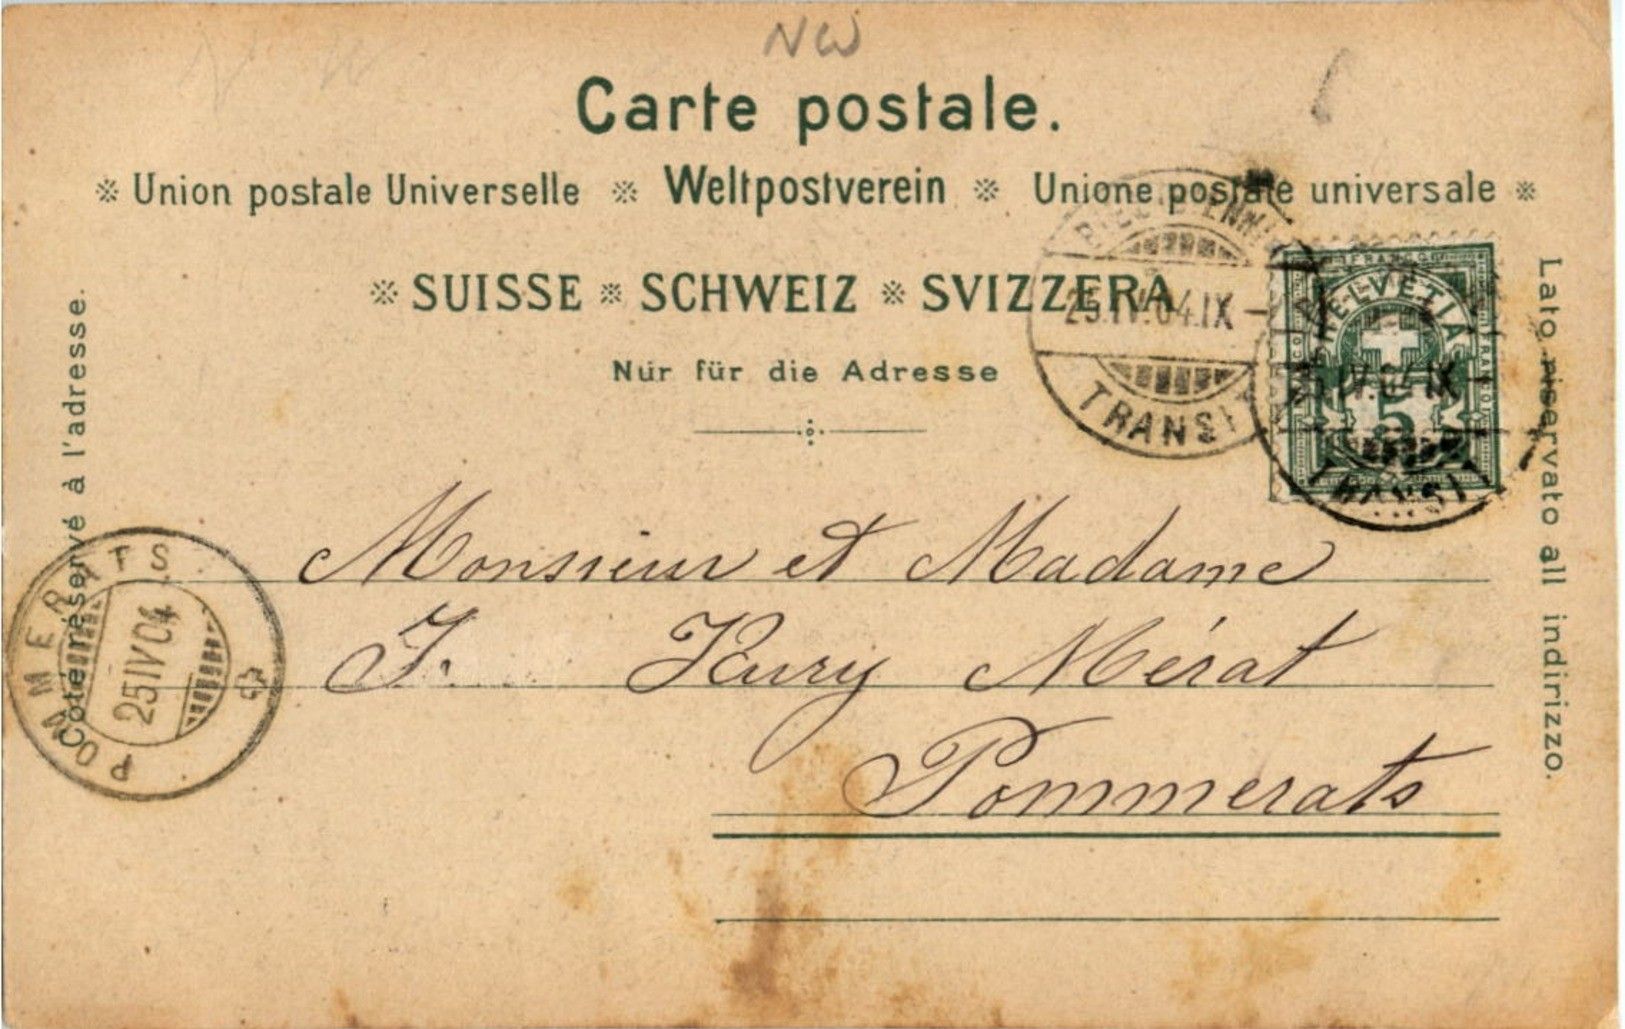 NW
Carte postale.
※ Union postale Universelle ※ Weltpostverein ※ Unione postale universale ※
※ SUISSE ※ SCHWEIZ ※ SVIZZERA
Nur für die Adresse
Côté réservé à l'adresse.
Lato riservato all indirizzo.
BIEL (BIENNE)
25.IV.04.IX
TRANSIT
FRANCO
HELVETIA
5
IV.04.IX
TRANSIT
POMMERATS
25 IV 04
Monsieur et Madame
J. Kury Mérat
Pommerats